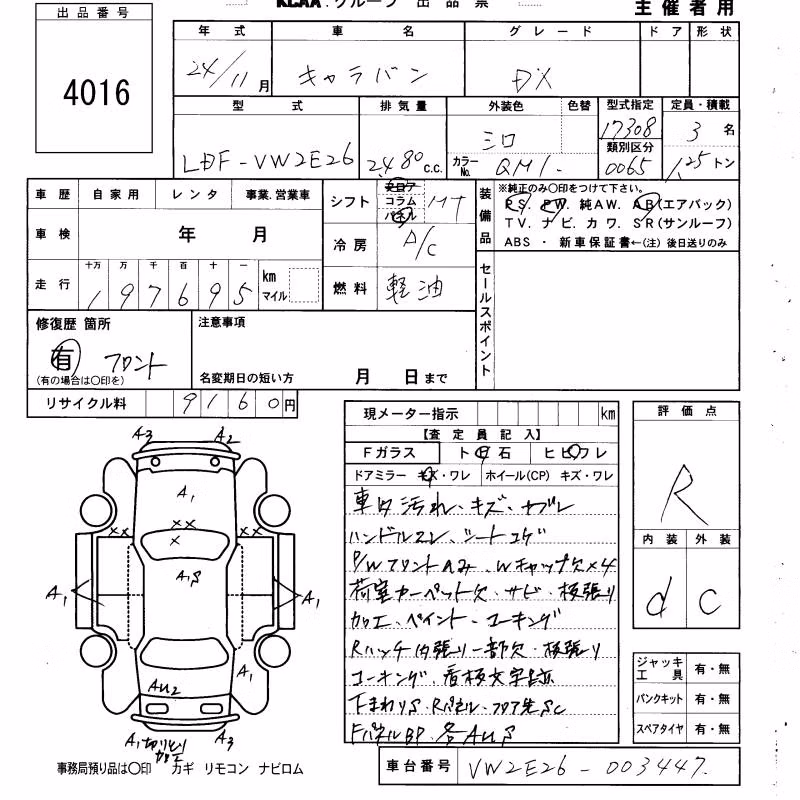 KCAA.グループ 出品票
主催者用
出品番号
4016
年式 車名 グレード ドア 形状
24/11月 キャラバン DX
型式 排気量 外装色 色替 型式指定 定員・積載
17308 3名
類別区分
LDF-VW2E26 2480c.c. シロ カラーNo. QM1. 0065 1.25トン
車歴 自家用 レンタ 事業.営業車
車検 年 月
走行 十万 万 千 百 十 一 km マイル
197695
シフト フロア コラム パネル
冷房 A/C
燃料 軽油
装備品
※純正のみ○印をつけて下さい。
PS. PW. 純AW. AB(エアバック)
TV. ナビ. カワ. SR(サンルーフ)
ABS ・ 新車保証書←(注) 後日送りのみ
セールスポイント
修復歴 箇所
有 フロント
(有の場合は○印を)
注意事項
名変期日の短い方 月 日まで
リサイクル料 9160円
現メーター指示 km
【査定員記入】
Fガラス ト 石 ヒビワレ
ドアミラー キズ・ワレ ホイール(CP) キズ・ワレ
車内汚れ、キズ、
ハンドルスレ、シートコゲ
P/Wフロントのみ、Wキャップ欠×4
荷室カーペット欠、サビ・板張り
加工、ペイント・コーキング
Rハッチ内張り一部欠、板張り
コーキング、看板文字跡
下まわりS・Rパネル・フロア先SC
FパネルBP、各AUS
評価点
R
内装 外装
d C
ジャッキ 工具 有・無
パンクキット 有・無
スペアタイヤ 有・無
A3 A2
A1
×× ××
×
A1S
A1 A1
A1
AU2
A1 切りとり加工 A3
事務局預り品は○印 カギ リモコン ナビロム
車台番号 VW2E26-003447.